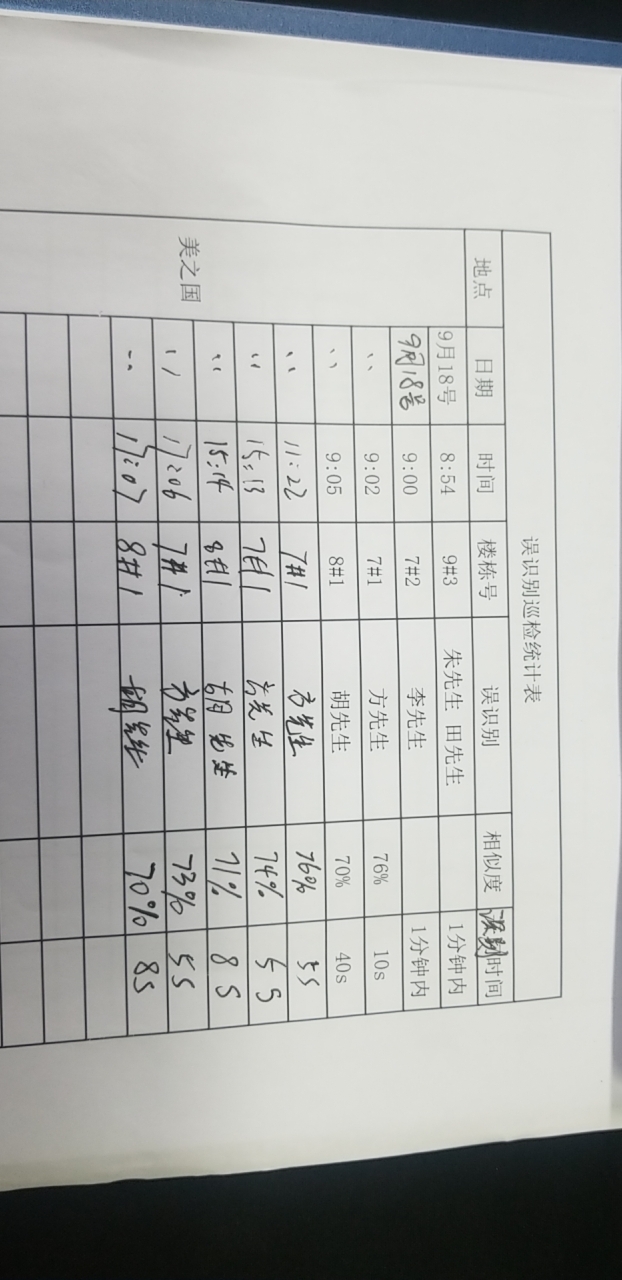 误识别巡检统计表
地点 日期 时间 楼栋号 误识别 相似度 识别时间
美之国
9月18号 8:54 9#3 朱先生 田先生 1分钟内
9月18号 9:00 7#2 李先生 1分钟内
〃 9:02 7#1 方先生 76% 10s
〃 9:05 8#1 胡先生 70% 40s
〃 11:22 7#1 方先生 76% 5S
〃 15:13 7#1 方先生 74% 5S
〃 15:14 8#1 胡先生 71% 8S
〃 17:06 7#1 方先生 73% 5S
〃 17:07 8#1 胡先生 70% 8S